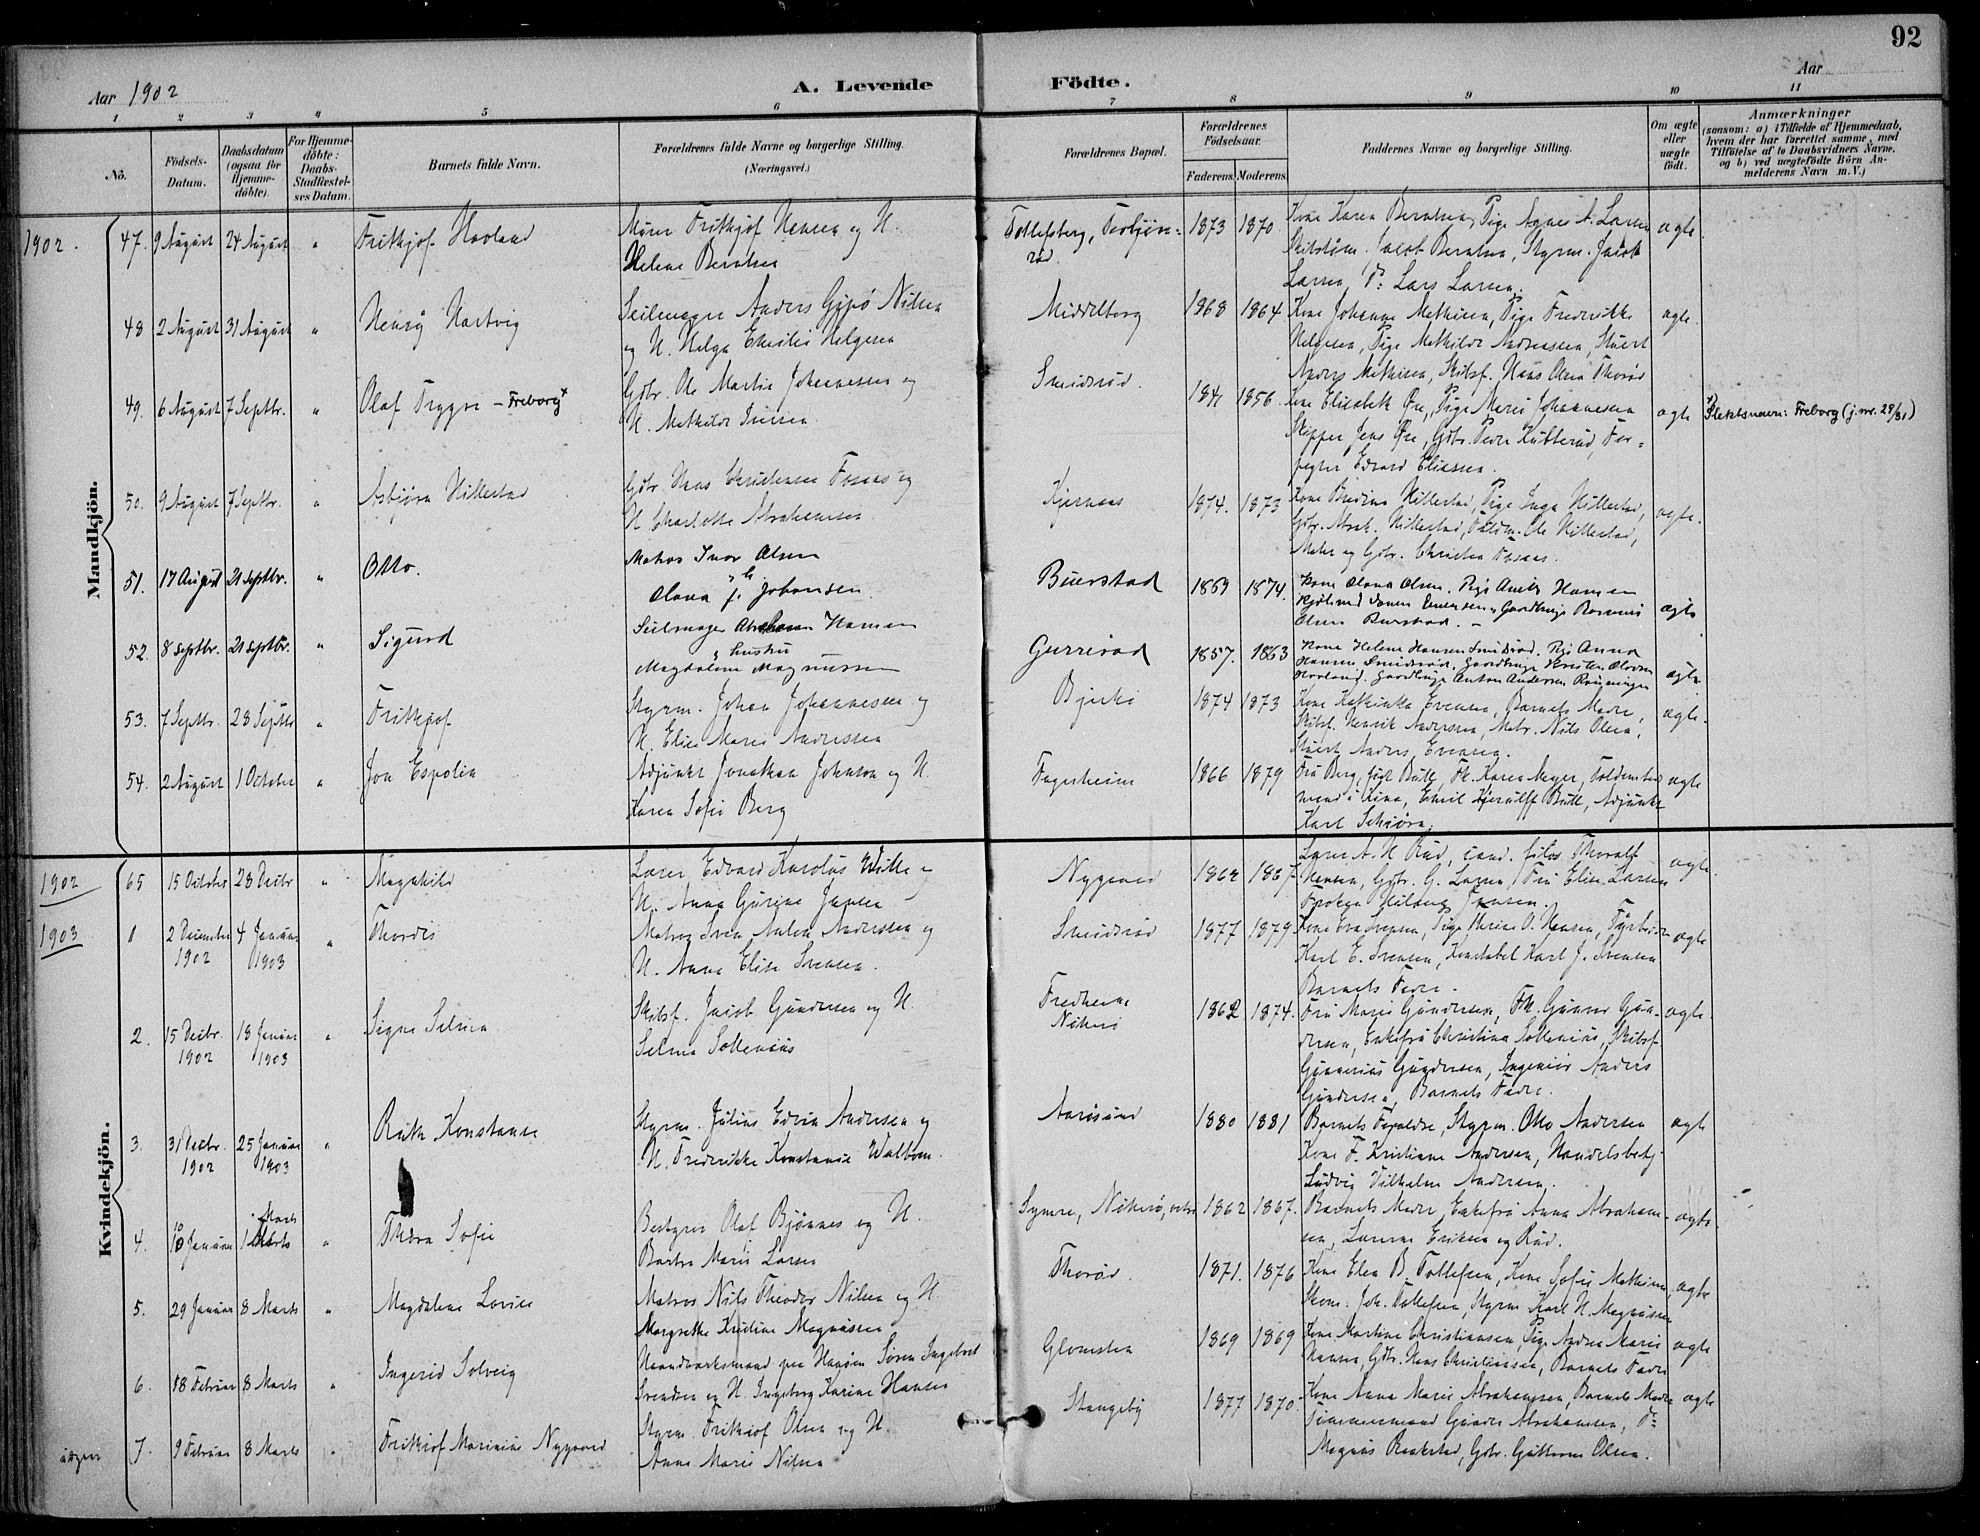 92
Aar 1902
A. Levende Födte.
Aar
1 2 3 4 5 6 7 8 9 10 11
No.
Födsels-Datum.
Daabsdatum (ogsaa for Hjemmedöbte).
For Hjemmedöbte: Daabs-Stadfæstelses Datum.
Barnets fulde Navn.
Forældrenes fulde Navne og borgerlige Stilling. (Næringsvei.)
Forældrenes Bopæl.
Forældrenes Födselsaar.
Faderens. Moderens.
Faddernes Navne og borgerlige Stilling.
Om ægte eller uægte födt.
Anmærkninger
(saasom: a) i Tilfælde af Hjemmedaab,
hvem der har forrettet samme, med
Tilföielse af to Daabsvidners Navne,
og b) ved uægtefödte Börn Anmelderens Navn m.V.)
Mandkjön.
1902. 47. 9 August 24 August " Frithjof Havland
Murer Frithjof Hansen og H.
Helene Berntsen
1873 1870
Kone Karen Berntsen, Pige Agnes A. Larsen
Skibstøm. Jacob Berntsen, Styrm. Jacob
Larsen, Lars Larsen.
ægte
48 2 August 31 August " Henry Hartvig
Seilmager Anders Gipø Nilsen
og H. Helga Helgesen
Middelborg 1868 1864
Kone Johanne Mathisen, Pige Fredrikke
Helgesen, Pige Mathilde Andreassen, Stuert
Anders Mathisen, Skibsf. Hans Olsen Thorød
ægte.
49. 6 August 7 Septbr. " Olaf Trygve – Freborg x
Gdbr. Ole Martin Johannessen og
H. Mathilde Iversen
Smidsrød. 1841 1856
Kone Elisabeth Øre, Pige Marie Johannessen
Skipper Jens Øre, Gdbr. Peder Kubberød, For-
pagter Edvard Eliassen.
ægte
x) Slektsnavn: Freborg (j.nr. 28/31)
50. 9 August 7 Septbr. " Asbjørn Hillestad
Gdbr. Hans Christensen Fossaas og
H. Charlotte Abrahamsen
Kjernaas 1874. 1873
Kone Hillestad, Pige Inga Hillestad,
Gdbr. Abrah. Hillestad, Ole Hillestad,
Mats og Gdbr. Christen Fossaas.
ægte.
51. 17 August 21 septbr. " Otto.
Matros Ivar Olsen
Olava J. Johansen.
Buerstad 1869 1874.
Kone Olava Olsen. Pige Hansen
Olsen Buerstad. –
ægte
52. 8 septbr. 21 septbr. " Sigurd
Seilmager Hansen
" hustru
Magdalene Magnussen
Gurrisød 1857. 1863
Kone Helene Hansen Smidsrød. Pige Anna
Hansen Smidsrød. Olsen
Havland. Anton Andersen
ægte.
53. 7 Septbr. 28 Septbr " Frithjof
Styrm. Johan Johannessen og
H. Elise Marie Andersen
Bjerke 1874 1873
Kone Kathinka Evensen, Barnets Moder,
Skibsf. Henrik Andersen, Matr. Nils Olsen,
Stuert Anders Evensen.
ægte.
54. 2 August 1 October " Jon Espolin
Adjunkt Jonathan Johnson og H.
Karen Sofie Berg
Fagerheim 1866 1879
Fru Berg, Bull, Frk. Karen Meyer,
mand i Kina, Emil Hjerulff Bull, Adjunkt
Karl Schiørn.
ægte
Kvindekjön.
1902 65 15 October 28 Decbr " Magnhild
Lærer Edvard Karolus Wille og
H. Anna Gurine Jansen
Nygaard 1862 1867.
Lærer A. H. Rud, cand. filos. Thoralf
Hansen, Gdbr. G. Larsen, Fru Elise Larsen
Frøken Jansen.
ægte.
1903 1 2 December 1902 4 Januar 1903 " Thordis
Matros Sven Anton Andersen og
H. Anna Elise Svensen.
Smidsrød 1877 1879.
Kone Eva Svensen, Pige O. Hansen, Fyrbøder
Karl E. Svensen, Konstabel Karl J. Svensen
Barnets Fader.
ægte
2. 15 Decbr. 1902 18 Januar 1903 " Signe Selma
Skibsf. Jacob Gundersen og H.
Selma Sollenius
Fredheim
1862 1874.
Fru Marie Gundersen, Frk. Gunvor Gun-
dersen, Enkefru Christina Sollenius, Skibsf.
Gunnerius Gundersen, Ingeniør Anders
Gundersen, Barnets Fader.
ægte.
3. 31 Decbr. 1902 25 Januar 1903 " Ruth Konstanse
Styrm. Julius Edvin Andersen og
H. Fredrikke Konstanse Walbom.
Aarøsund 1880 1881
Barnets Forældre, Styrm. Otto Andersen
Kone F. Kristiane Andersen, Handelsbetj.
Ludvig Vilhelm Andersen.
ægte
4. 10 Januar 1 Marts " Thora Sofie
Bestyrer Olaf Bjønnes og H.
Barbra Marie Larsen
Symre, Nøtterø, 1862 1867.
Barnets Moder, Enkefru Anna Abraham-
sen, Lærerne Eriksen og Rud.
ægte
5. 29 Januar 8 Marts " Magdalene Lovise
Matros Nils Theodor Nilsen og H.
Margrethe Kristine Magnussen
Thorød. 1871. 1876
Kone Elen B. Tollefsen, Kone Sofie Mathisen,
Skom. Joh. Tollefsen, Styrm. Karl H. Magnussen
ægte
6. 18 Februar 8 Marts " Ingerid Solveig
Haandverksmand paa Husøen Søren Ingebret
Svendsen og H. Ingeborg Karine Hansen
Glomsten 1869 1869
Kone Martine Christiansen, Pige Andrea Marie
Hansen, Gdbr. Hans Christiansen, Barnets Fader
ægte
7. 9 Februar 8 Marts " Frithjof Marinius Nygaard
Styrm. Frithjof Olsen og H.
Anna Marie Nilsen
Stangeby 1877 1870.
Kone Anna Marie Abrahamsen, Barnets Moder
Tømmermand Gunder Abrahamsen,
Magnus Raastad, Gdbr. Guttorm Olsen.
ægte